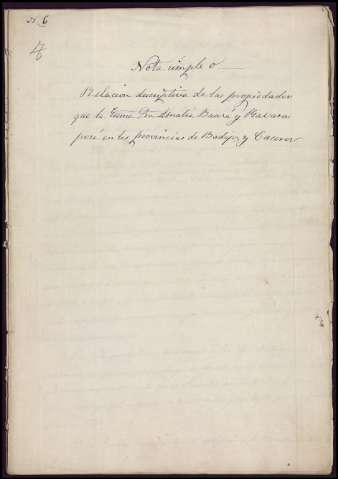 N. 6
Nota simple o
Relacion descriptiva de las propiedades
que la Exma. Sra. Amalia y
posé en las provincias de Badajoz y Caceres